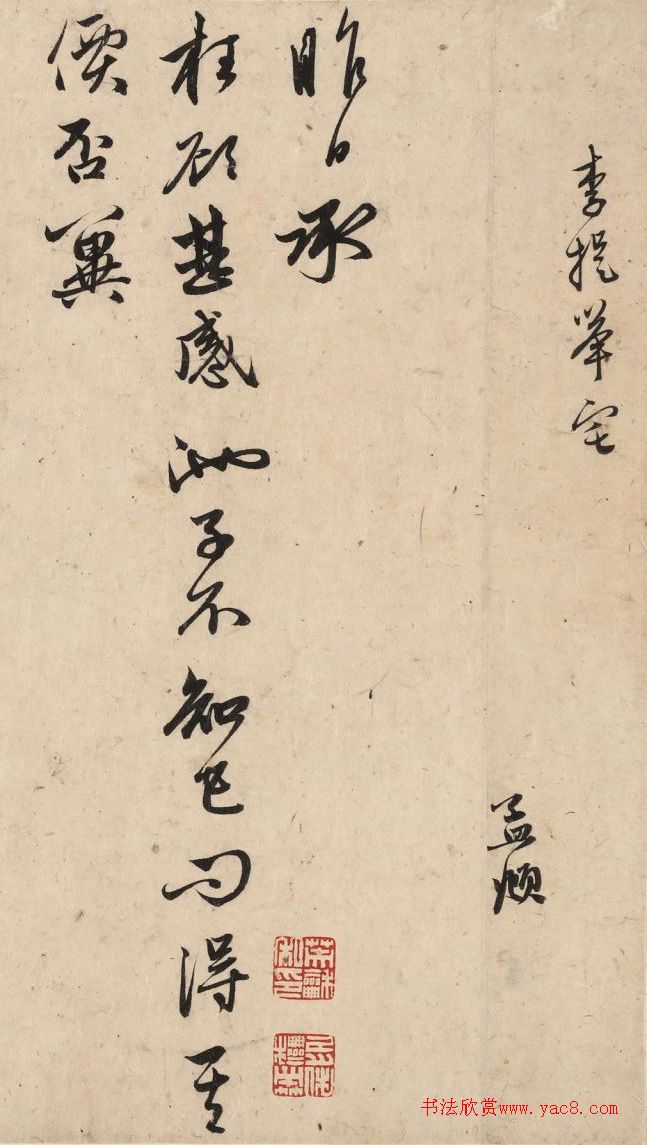 李提舉宅
孟頫
昨日承
枉顧甚感池子不知已問得其
價否冀
书法欣赏www.yac8.com